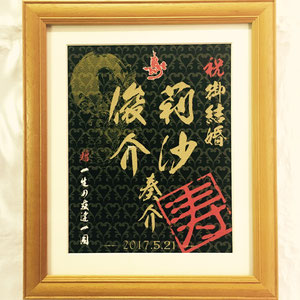 祝御結婚
莉沙
俊介
奏介
寿
一生の友達一同
2017.5.21